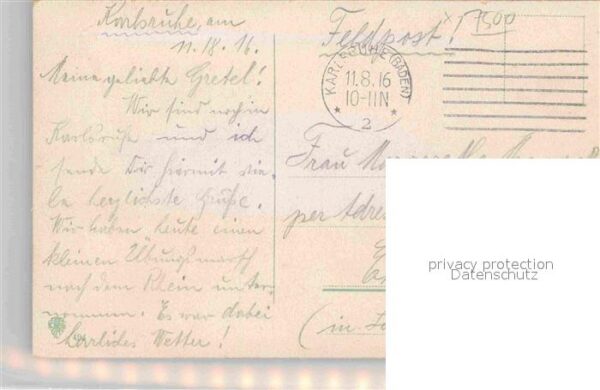 Karlsruhe, am
11. 18. 16.
Meine geliebte Gretel!
Wir sind noch in
Karlsruhe und ich
sende Dir hiermit vie-
le herzlichste Grüße.
Wir haben heute einen
kleinen Übungsmarsch
nach dem Rhein unter-
nommen. Es war dabei
herrliches Wetter!
Feldpost!
7500
KARLSRUHE (BADEN)
11.8.16
10-11N
* 2 *
Frau
per Adre
(in
privacy protection
Datenschutz